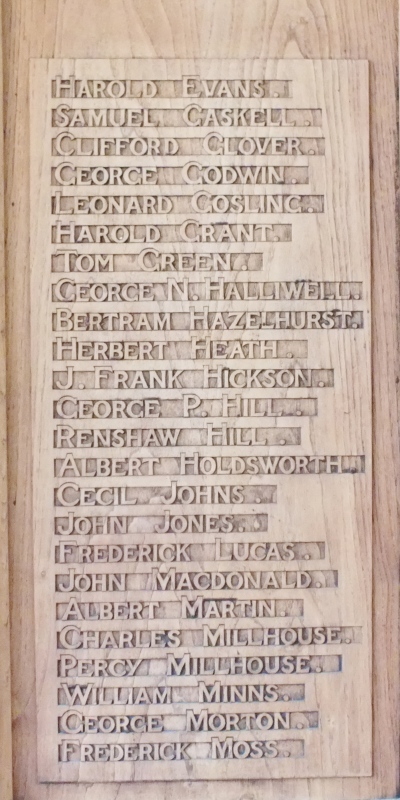 HAROLD EVANS.
SAMUEL GASKELL.
CLIFFORD GLOVER.
GEORGE GODWIN.
LEONARD GOSLING.
HAROLD GRANT.
TOM GREEN.
GEORGE N. HALLIWELL.
BERTRAM HAZELHURST.
HERBERT HEATH.
J. FRANK HICKSON.
GEORGE P. HILL.
RENSHAW HILL.
ALBERT HOLDSWORTH.
CECIL JOHNS.
JOHN JONES.
FREDERICK LUCAS.
JOHN MACDONALD.
ALBERT MARTIN.
CHARLES MILLHOUSE.
PERCY MILLHOUSE.
WILLIAM MINNS.
GEORGE MORTON.
FREDERICK MOSS.